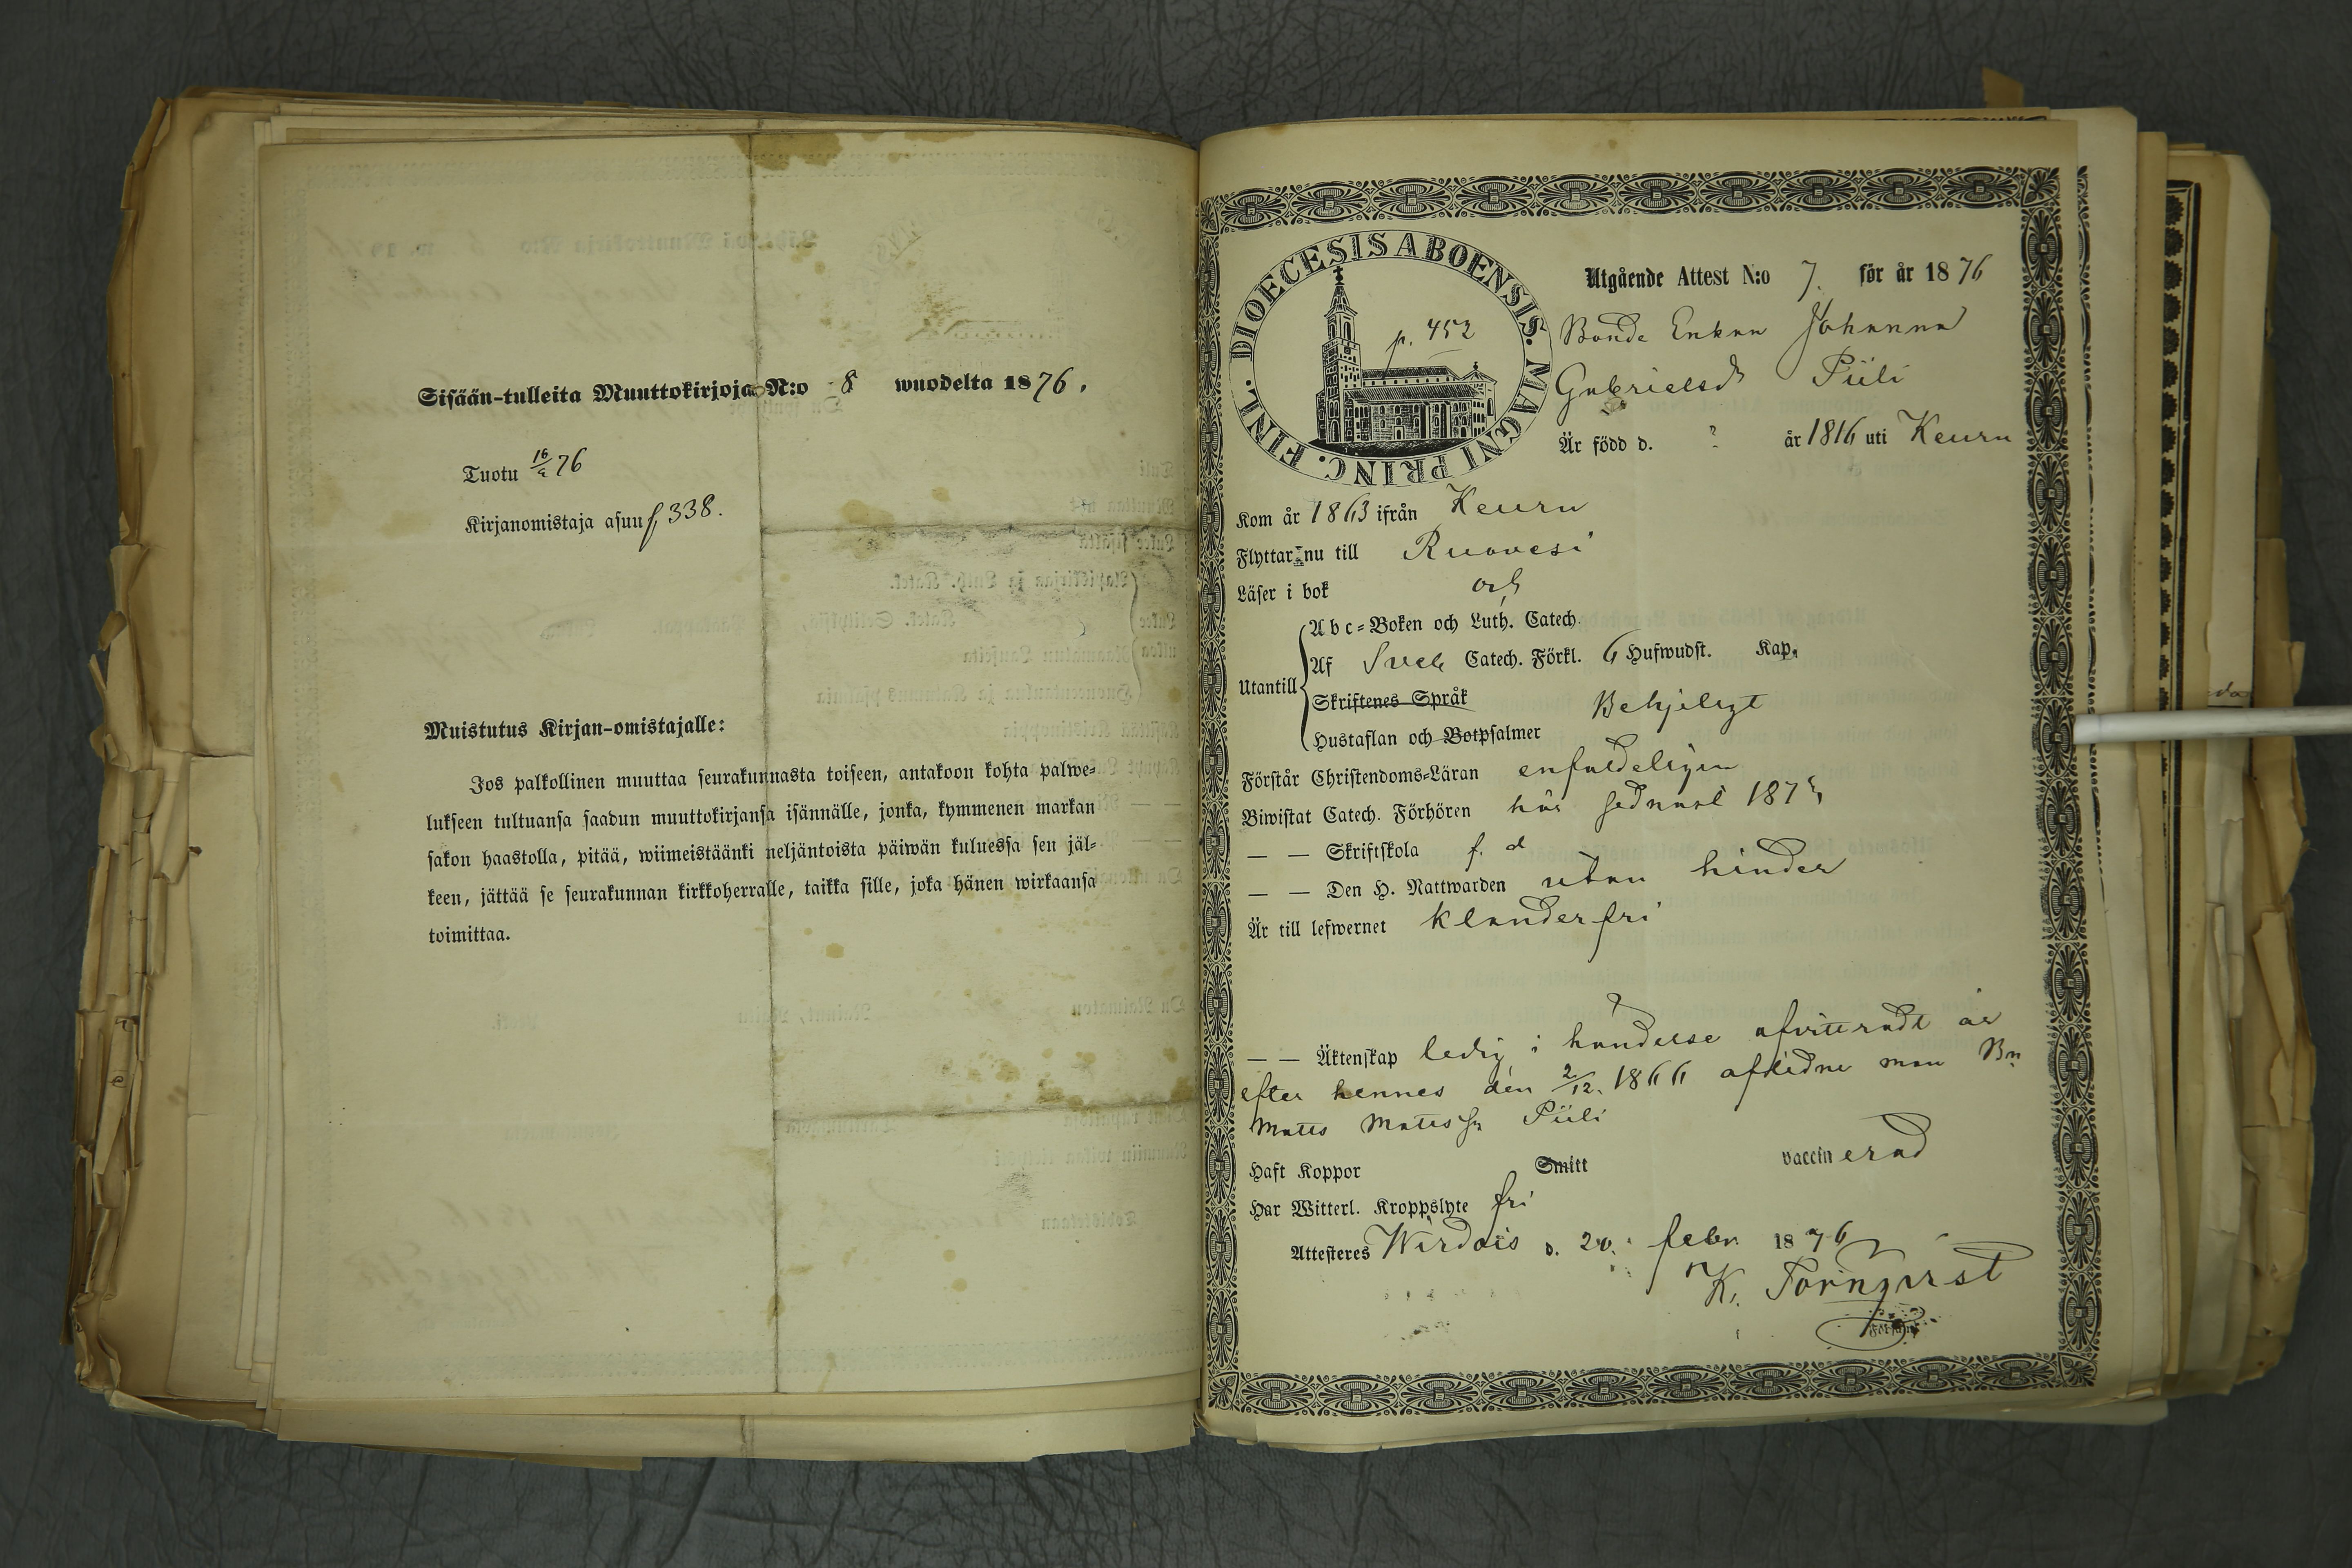 Sisään-tulleita Muuttokirjoja N:o 8 wuodelta 1876.
Tuotu 16/2 76
Kirjanomistaja asuu f 338.
Muistutus Kirjan-omistajalle:
Jos palkollinen muuttaa seurakunnasta toiseen, antakoon kohta palwe-
lukseen tultuansa saadun muuttokirjansa isännälle, jonka, kymmenen markan
sakon haastolla, pitää, wiimeistäänki neljäntoista päiwän kuluessa sen jäl-
keen, jättää se seurakunnan kirkkoherralle, taikka sille, joka hänen wirkaansa
toimittaa.
DIOECESIS ABOENSIS. MAGNI PRINC. FINL.
p. 452
Utgående Attest N:o 7. för år 1876
Bonde Enkan Johanna
Gabrielsd Piili
Är född d. ? år 1816 uti Keuru
Kom år 1863 ifrån Keuru
Flyttar nu till Ruovesi
Läser i bok och
Utantill
Abc-Boken och Luth. Catech.
Af Sveb Catech. Förkl. 6 Hufwudst. Kap.
Skriftenes Språk Behjelgt
Hustaflan och Botpsalmer
Förstår Christendoms-Läran enfaldeligen
Biwistat Catech. Förhören här sednast 1875
— — Skriftskola f. d
— — Den H. Nattwarden utan hinder
Är till lefwernet klanderfri
— — Äktenskap ledig i händelse afvittradt är
efter hennes den 2/12. 1866 aflidne man Bn
Matts Mattsson Piili
Haft Koppor Smitt vaccinerad
Har Witterl. Kroppslyte fri
Attesteres Wirdois d. 20. febr. 1876
K. Törnqvist